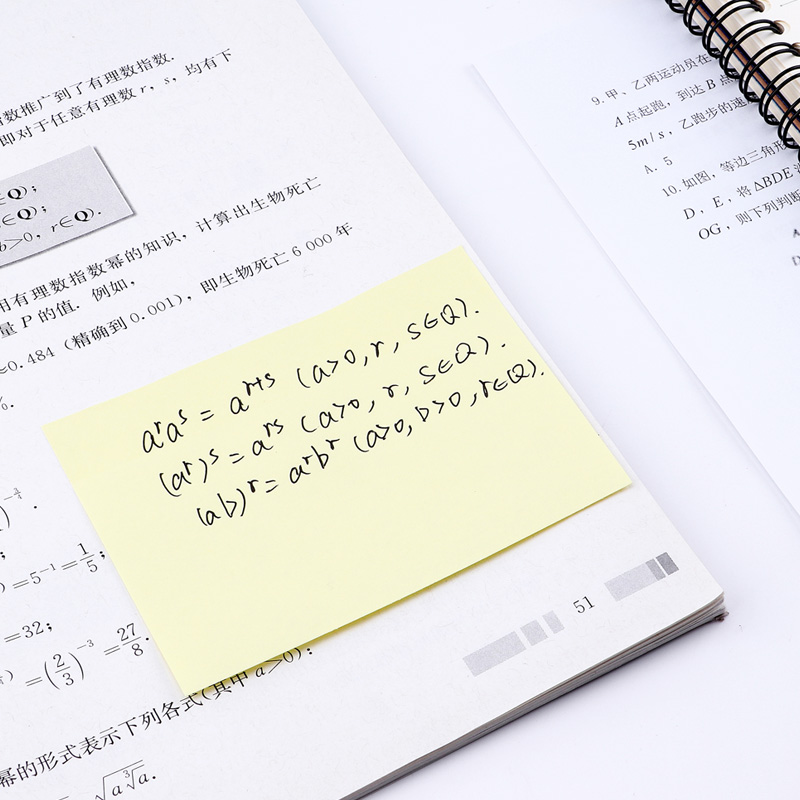 指数推广到了有理数指数.
即对于任意有理数 r，s，均有下
∈Q)；
∈Q)；
b>0，r∈Q).
用有理数指数幂的知识，计算出生物死亡
量 P 的值. 例如，
即生物死亡 6 000 年
≈0.484 (精确到 0.001)，
%.
aʳaˢ = aʳ⁺ˢ (a>0, r, s∈Q).
(aʳ)ˢ = aʳˢ (a>0, r, s∈Q).
(ab)ʳ = aʳbʳ (a>0, b>0, r∈Q).
)=5⁻¹=1/5；
=32；
=(2/3)⁻³=27/8.
幂的形式表示下列各式(其中 a>0)：
√(a∛a).
51
9. 甲、乙两运动员在
A 点起跑，到达 B 点
5m/s，乙跑步的速
A. 5
10. 如图，等边三角形
D，E，将△BDE
OG，则下列判断